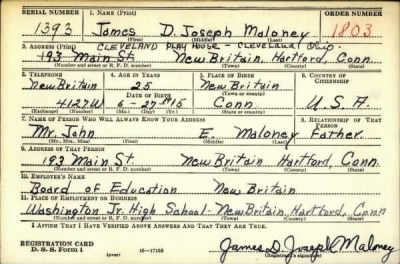 SERIAL NUMBER 1. NAME (Print) ORDER NUMBER
1393 James D. Joseph Maloney 1803
(First) (Middle) (Last)
CLEVELAND PLAY HOUSE - Cleveland Ohio.
2. ADDRESS (Print)
193 Main St. New Britain, Hartford, Conn.
(Number and street or R. F. D. number) (Town) (County) (State)
3. TELEPHONE 4. AGE IN YEARS 5. PLACE OF BIRTH 6. COUNTRY OF CITIZENSHIP
New Britain 25 New Britain
DATE OF BIRTH (Town or county)
4127W 6-27-1915 Conn. U.S.A.
(Exchange) (Number) (Mo.) (Day) (Yr.) (State or country)
7. NAME OF PERSON WHO WILL ALWAYS KNOW YOUR ADDRESS 8. RELATIONSHIP OF THAT PERSON
Mr. John E. Maloney Father.
(Mr., Mrs., Miss) (First) (Middle) (Last)
9. ADDRESS OF THAT PERSON
193 Main St. New Britain, Hartford, Conn.
(Number and street or R. F. D. number) (Town) (County) (State)
10. EMPLOYER'S NAME
Board of Education New Britain
11. PLACE OF EMPLOYMENT OR BUSINESS
Washington Jr. High School - New Britain, Hartford, Conn
(Number and street or R. F. D. number) (Town) (County) (State)
I AFFIRM THAT I HAVE VERIFIED ABOVE ANSWERS AND THAT THEY ARE TRUE.
REGISTRATION CARD
D. S. S. Form 1 (over) 16-17105
James D. Joseph Maloney
(Registrant's signature)